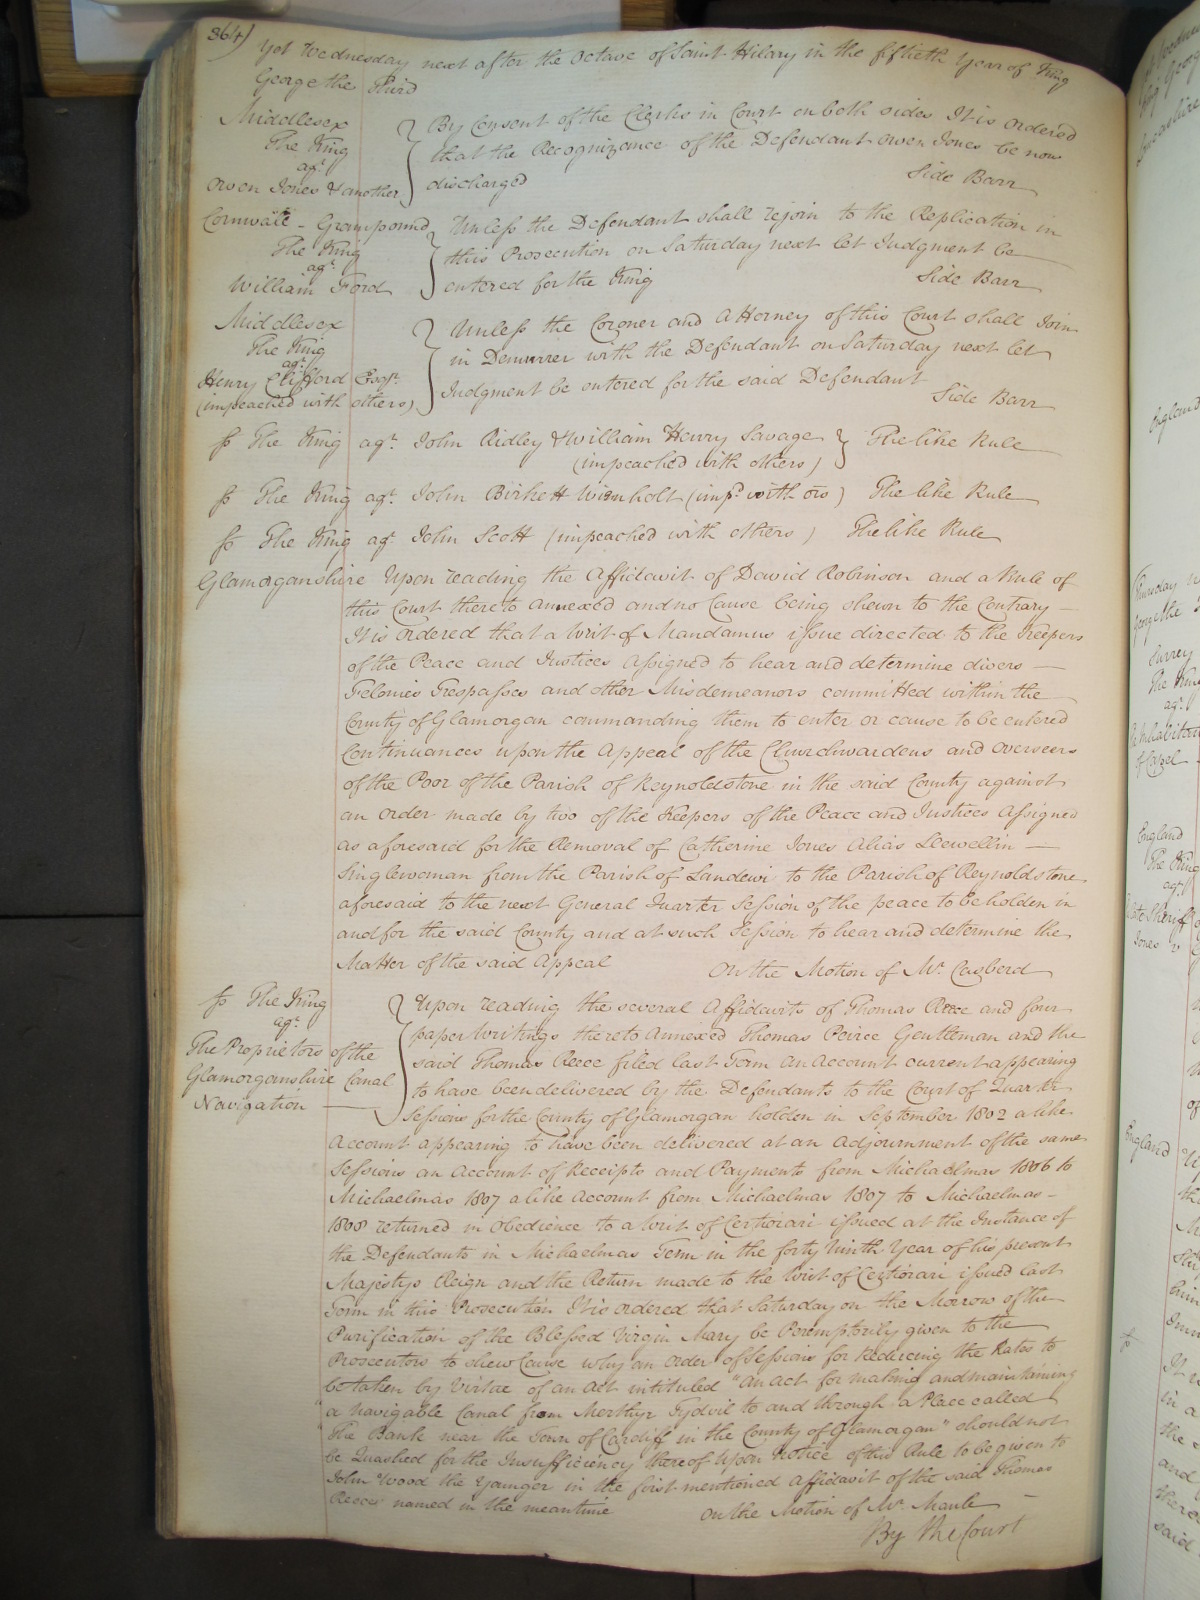 364)
Yet Wednesday next after the Octave of Saint Hilary in the fiftieth Year of King
George the Third
Middlesex
The King
agt
Owen Jones & another
By Consent of the Clerks in Court on both sides It is ordered
that the Recognizance of the Defendant Owen Jones be now
discharged
Side Barr
Cornwall - Grampound
The King
agt
William Ford
Unless the Defendant shall rejoin to the Replication in
this Prosecution on Saturday next let Judgment be
entered for the King
Side Barr
Middlesex
The King
agt
Henry Clifford Esqr.
(impeached with others)
Unless the Coroner and Attorney of this Court shall Join
in Demurrer with the Defendant on Saturday next let
Judgment be entered for the said Defendant
Side Barr
So The King agt. John Ridley & William Henry Savage
(impeached with others)
The like Rule
So The King agt. John Birkett Wimholt (impd. with ors) The like Rule
So The King agt John Scott (impeached with others) The like Rule
Glamorganshire Upon reading the Affidavit of David Robinson and a Rule of
this Court thereto annexed and no Cause being shewn to the Contrary —
It is ordered that a Writ of Mandamus issue directed to the Keepers
of the Peace and Justices Assigned to hear and determine divers —
Felonies Trespasses and other Misdemeanors committed within the
County of Glamorgan commanding them to enter or cause to be entered
Continuances upon the Appeal of the Churchwardens and Overseers
of the Poor of the Parish of Reynoldstone in the said County against
an Order made by two of the Keepers of the Peace and Justices Assigned
as aforesaid for the Removal of Catherine Jones Alias Llewellin —
Singlewoman from the Parish of Landewi to the Parish of Reynoldstone
aforesaid to the next General Quarter Session of the peace to be holden in
and for the said County and at such Session to hear and determine the
Matter of the said Appeal
On the Motion of Mr. Casberd
So The King
agt.
The Proprietors of the
Glamorganshire Canal
Navigation
Upon reading the several Affidavits of Thomas Reece and four
paper Writings thereto Annexed Thomas Peirce Gentleman and the
said Thomas Reece filed last Term An Account current appearing
to have been delivered by the Defendants to the Court of Quarter
Sessions for the County of Glamorgan holden in September 1802 a like
Account appearing to have been delivered at an Adjournment of the same
Sessions an Account of Receipts and Payments from Michaelmas 1806 to
Michaelmas 1807 a like Account from Michaelmas 1807 to Michaelmas -
1808 returned in Obedience to a Writ of Certiorari issued at the Instance of
the Defendants in Michaelmas Term in the forty Ninth Year of his present
Majestys Reign and the Return made to the Writ of Certiorari issued last
Term in this Prosecution It is ordered that Saturday on the Morrow of the
Purification of the Blessed Virgin Mary be Peremptorily given to the
Prosecutors to shew Cause why an Order of Sessions for Reducing the Rates to
be taken by Virtue of an Act intituled "An Act for making and maintaining
"a Navigable Canal from Merthyr Tydvil to and through a Place called
"The Bank near the Town of Cardiff in the County of Glamorgan" should not
be Quashed for the Insufficiency thereof Upon Notice of this Rule to be given to
John Wood the Younger in the first mentioned Affidavit of the said Thomas
Reece named in the meantime
On the Motion of Mr. Manle
By the Court
England
Thursday
George the
Surrey
The King
agt.
Inhabitan
England
The King
agt.
England